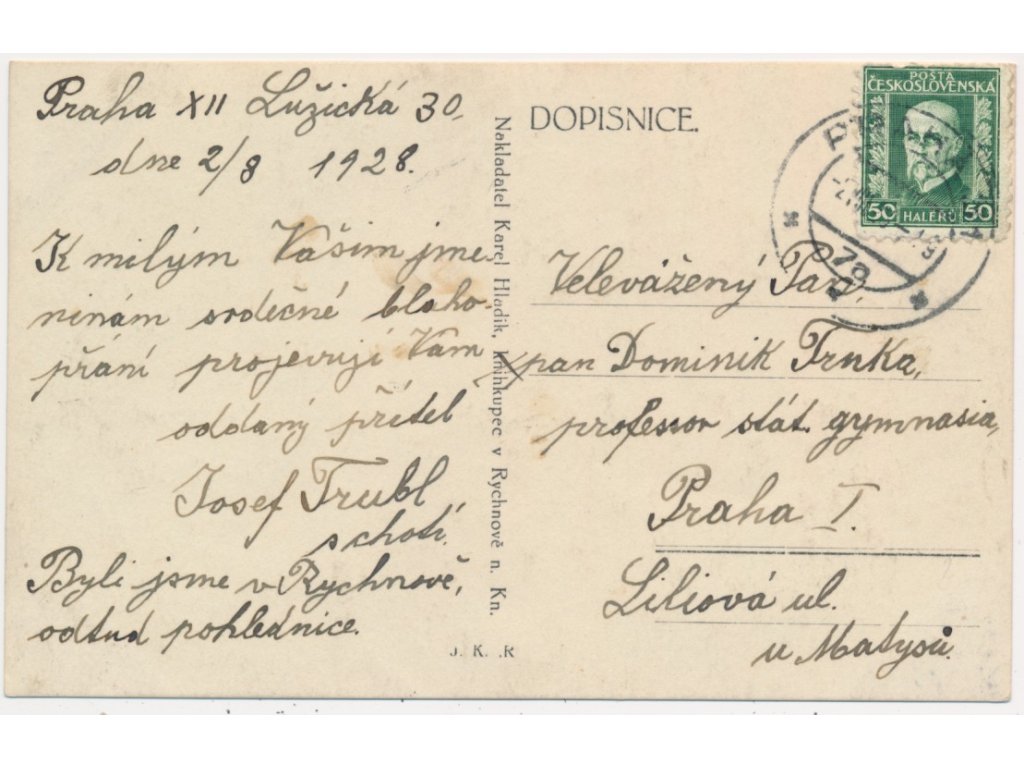 Praha XII Lužická 30,
dne 2/8 1928.
K milým Vašim jme-
ninám srdečné blaho-
přání projevují Vám
oddaný přítel
Josef Trubl
s chotí.
Byli jsme v Rychnově,
odtud pohlednice.
Nakladatel Karel Hladik, knihkupec v Rychnově n. Kn.
J. K. R
DOPISNICE.
POŠTA
ČESKOSLOVENSKA
50 HALÉŘŮ 50
79
Velevážený Pan,
pan Dominik Trnka,
professor stát. gymnasia,
Praha I.
Liliová ul.
u Matysů.